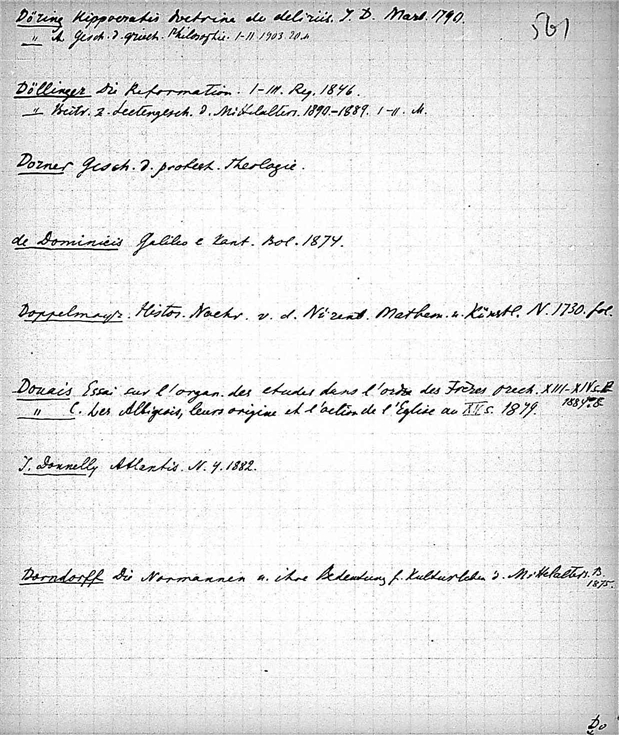 561
Döring Hippocratis doctrina de deliriis. J. D. Marb. 1790.
" A. Gesch. d. griech. Philosophie. I-II. 1903.
Döllinger Die Reformation. I-III. Reg. 1846.
" Beitr. z. Sectengesch. d. Mittelalters. 1890-1889. I-II. M.
Dorner Gesch. d. protest. Theologie.
de Dominicis Galileo e Kant. Bol. 1874.
Doppelmayr. Histor. Nachr. v. d. Nürenb. Mathem. u. Künstl. N. 1730. fol.
Douais Essai sur l'organ. des etudes dans l'ordre des Frères prech. XIII-XIV s. P.
1884.
" C. Les Albigeois, leurs origine et l'action de l'Eglise au XII s. 1879.
J. Donnelly Atlantis. N. Y. 1882.
Dorndorff Die Normannen u. ihre Bedeutung f. Kulturleben d. Mittelalters. B.
1875.
Do